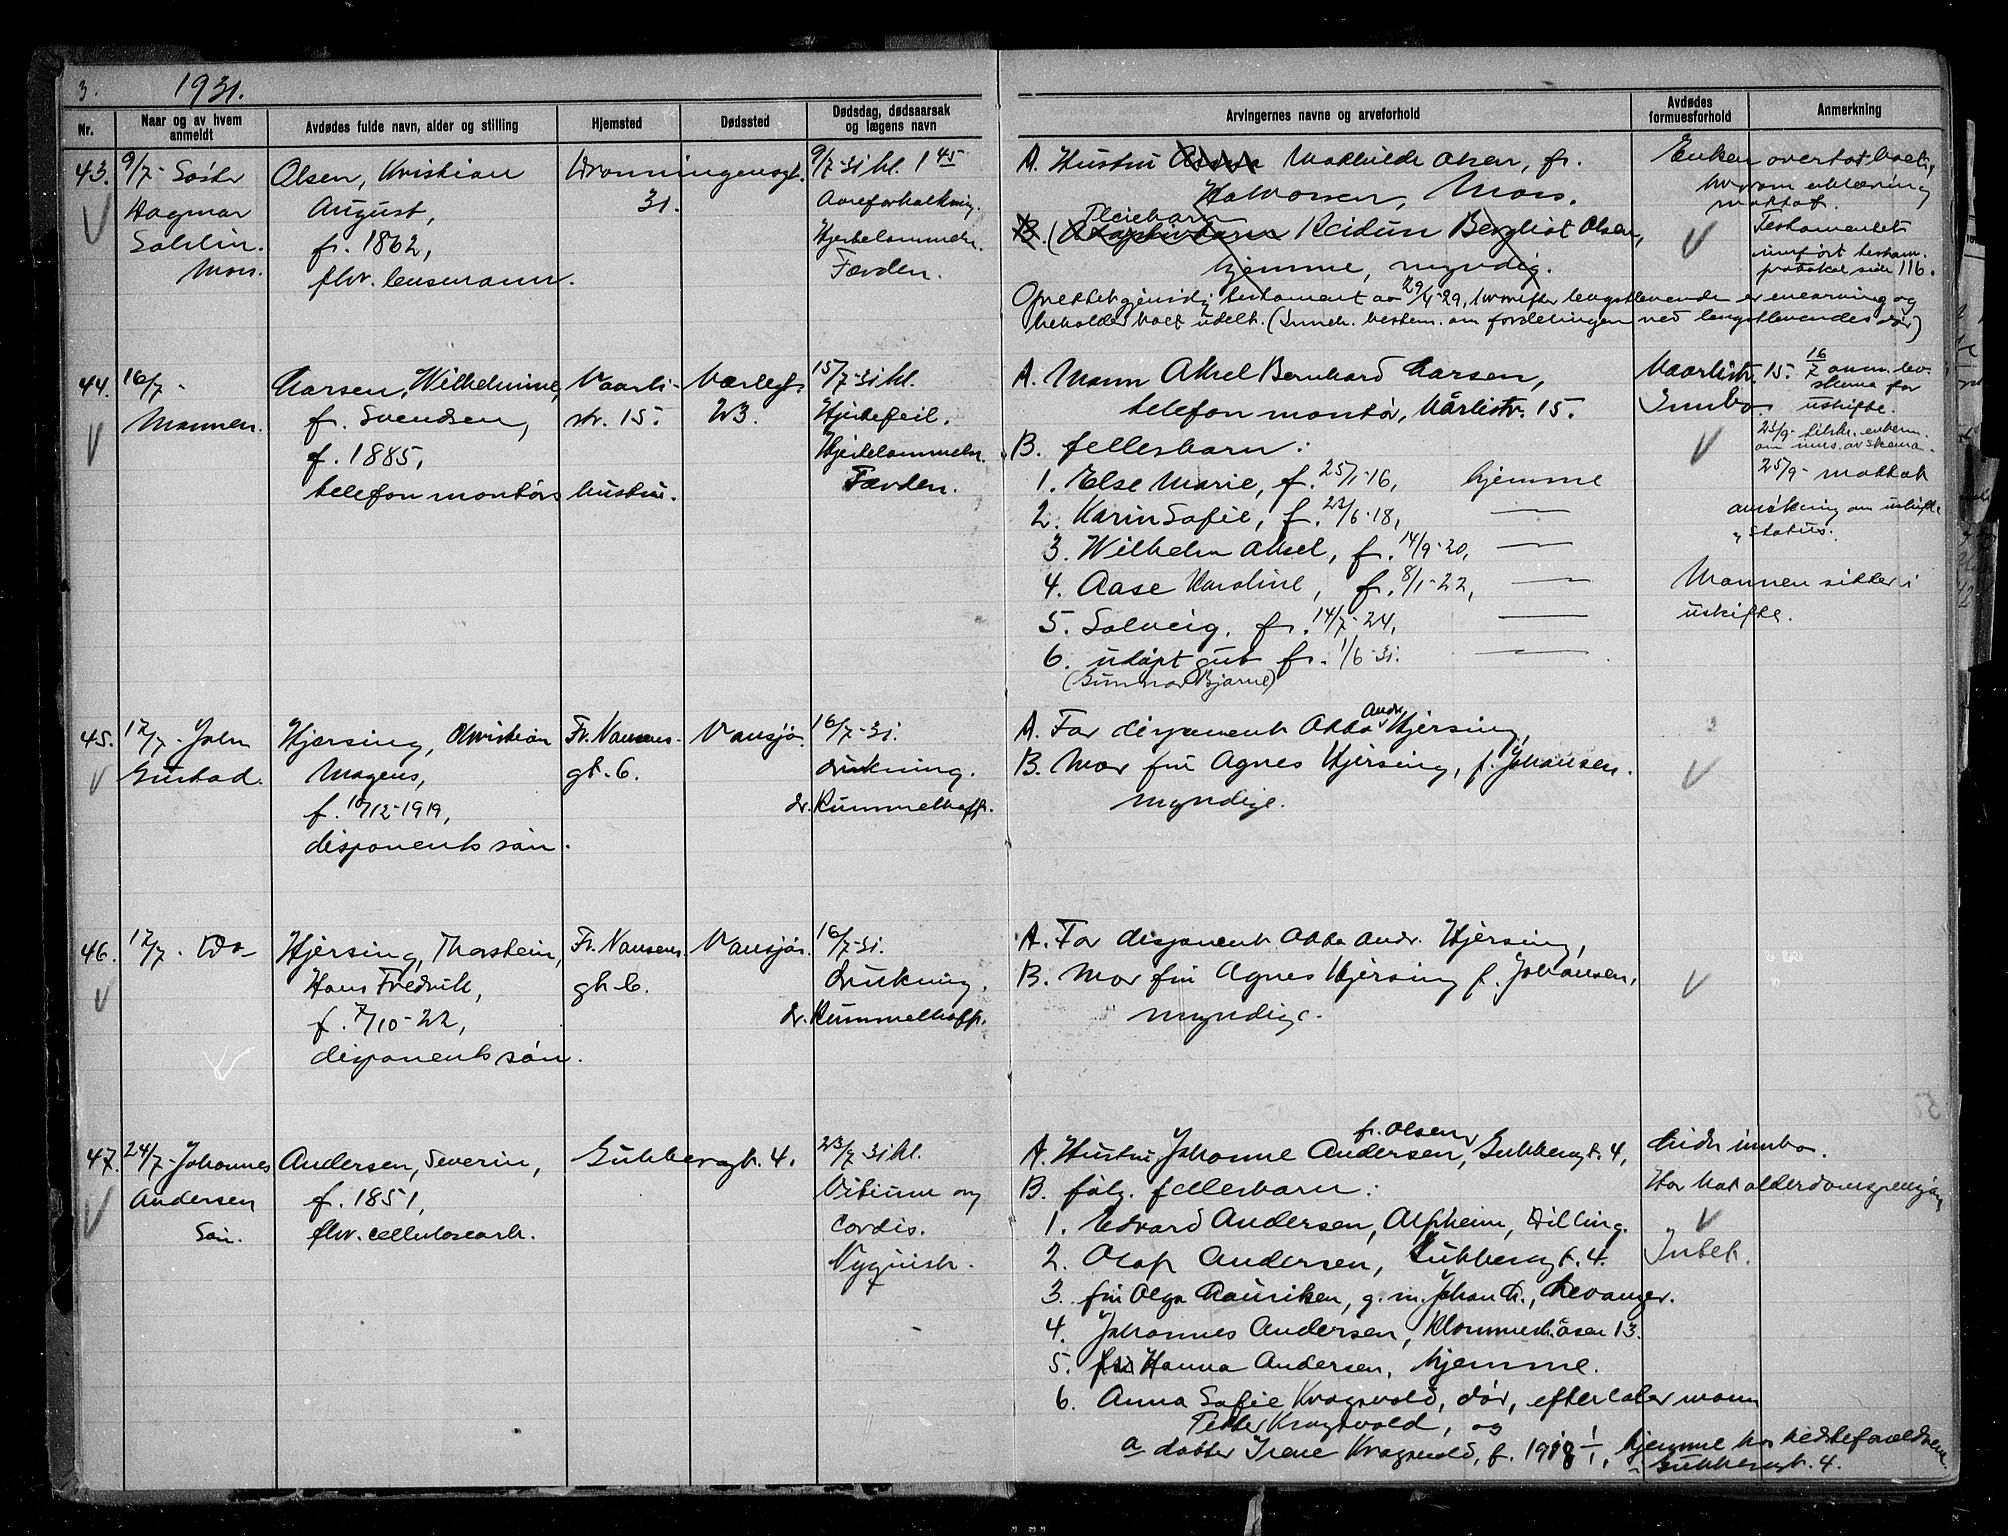 3.
1931.
Nr.
Naar og av hvem anmeldt
Avdødes fulde navn, alder og stilling
Hjemsted
Dødssted
Dødsdag, dødsaarsak og lægens navn
Arvingernes navne og arveforhold
Avdødes formuesforhold
Anmerkning
43.
9/7 - Søster
Dagmar
Moss.
Olsen, Kristian
August,
f. 1862,
fhv. lensmann.
Dronningensgt.
31.
9/7-31 kl. 1 45
Aareforkalkning.
Hjertelammelse.
Færden.
A. Hustru Anna Mathilde Olsen, f.
Halvorsen, Moss.
Pleiebarn
B. (Adoptivbarn Reidun Bergliot Olsen,
hjemme, myndig.
Oprettet gjensidig testament av 29/4-29, hvorefter lengstlevende er enearving og
beholder boet udelt. (Inneh. bestem. om fordelingen ved lengstlevendes død)
Enken overtat boet,
hvorom erklæring
mottat.
Testamentet
innført testam.
protokol side 116.
44.
16/7 -
Mannen.
Larsen, Wilhelmine,
f. Svendsen,
f. 1885,
telefonmontørs hustru.
Vaarli-
str. 15.
Værlegt.
23.
15/7-31 kl.
Hjertefeil.
Hjertelammelse.
Færden.
A. Mann Aksel Bernhard Larsen,
telefonmontør, Vårlistr. 15.
B. fellesbarn:
1. Else Marie, f. 25/1-16, hjemme
2. Karin Sofie, f. 23/6-18, —
3. Wilhelm Aksel, f. 14/9-20, —
4. Aase Karoline, f. 8/1-22, —
5. Solveig, f. 14/7-24, —
6. udøpt gut f. 1/6-31. —
(Gunnar Bjarne)
Vaarlistr. 15.
Innbo.
16/7 anm. lev.
skema for
uskifte.
25/9- mottat
ansøkning om uskift.
status.
Mannen sitter i
uskifte.
45.
17/7 - John
Gustad.
Hjersing, Christian
Mogens,
f. 10/12-1919,
disponents søn.
Fr. Nansens-
gt. 6.
Vansjø.
16/7-31.
drukning.
dr. Rummelhoff.
A. Far disponent Otto Andr. Hjersing,
B. Mor fru Agnes Hjersing, f. Johansen.
myndige.
46.
17/7 - Do -
Hjersing, Thorstein,
Hans Fredrik,
f. 7/10-22,
disponents søn.
Fr. Nansens
gt. 6.
Vansjø.
16/7-31.
drukning.
dr. Rummelhoff.
A. Far disponent Otto Andr. Hjersing,
B. Mor fru Agnes Hjersing f. Johansen,
myndige.
47.
24/7 - Johannes
Andersen
Søn.
Andersen, Severin,
f. 1851,
fhv. cellulosearb.
Gubbergt. 4.
23/7-31 kl.
Vitium org
cordis.
Nyquist.
f. Olsen
A. Hustru Johanne Andersen, Gubbergt. 4,
B. følg. fellesbarn:
1. Edvard Andersen, Alfheim, Dilling.
2. Olaf Andersen, Gubbergt. 4.
3. fru Olga Lauriksen, g. m. Johan L., Levanger.
4. Johannes Andersen, Klommeståsen 13.
5. fru Hanna Andersen, hjemme.
6. Anna Sofie Kragsvold, død, efterlater mann
Petter Kragsvold, og
a datter Irene Kragsvold, f. 1918 1/1, hjemme hos besteforeldrene
Gubbergt. 4.
Endr innbo.
Har hat alderdomspensjon
Intet.